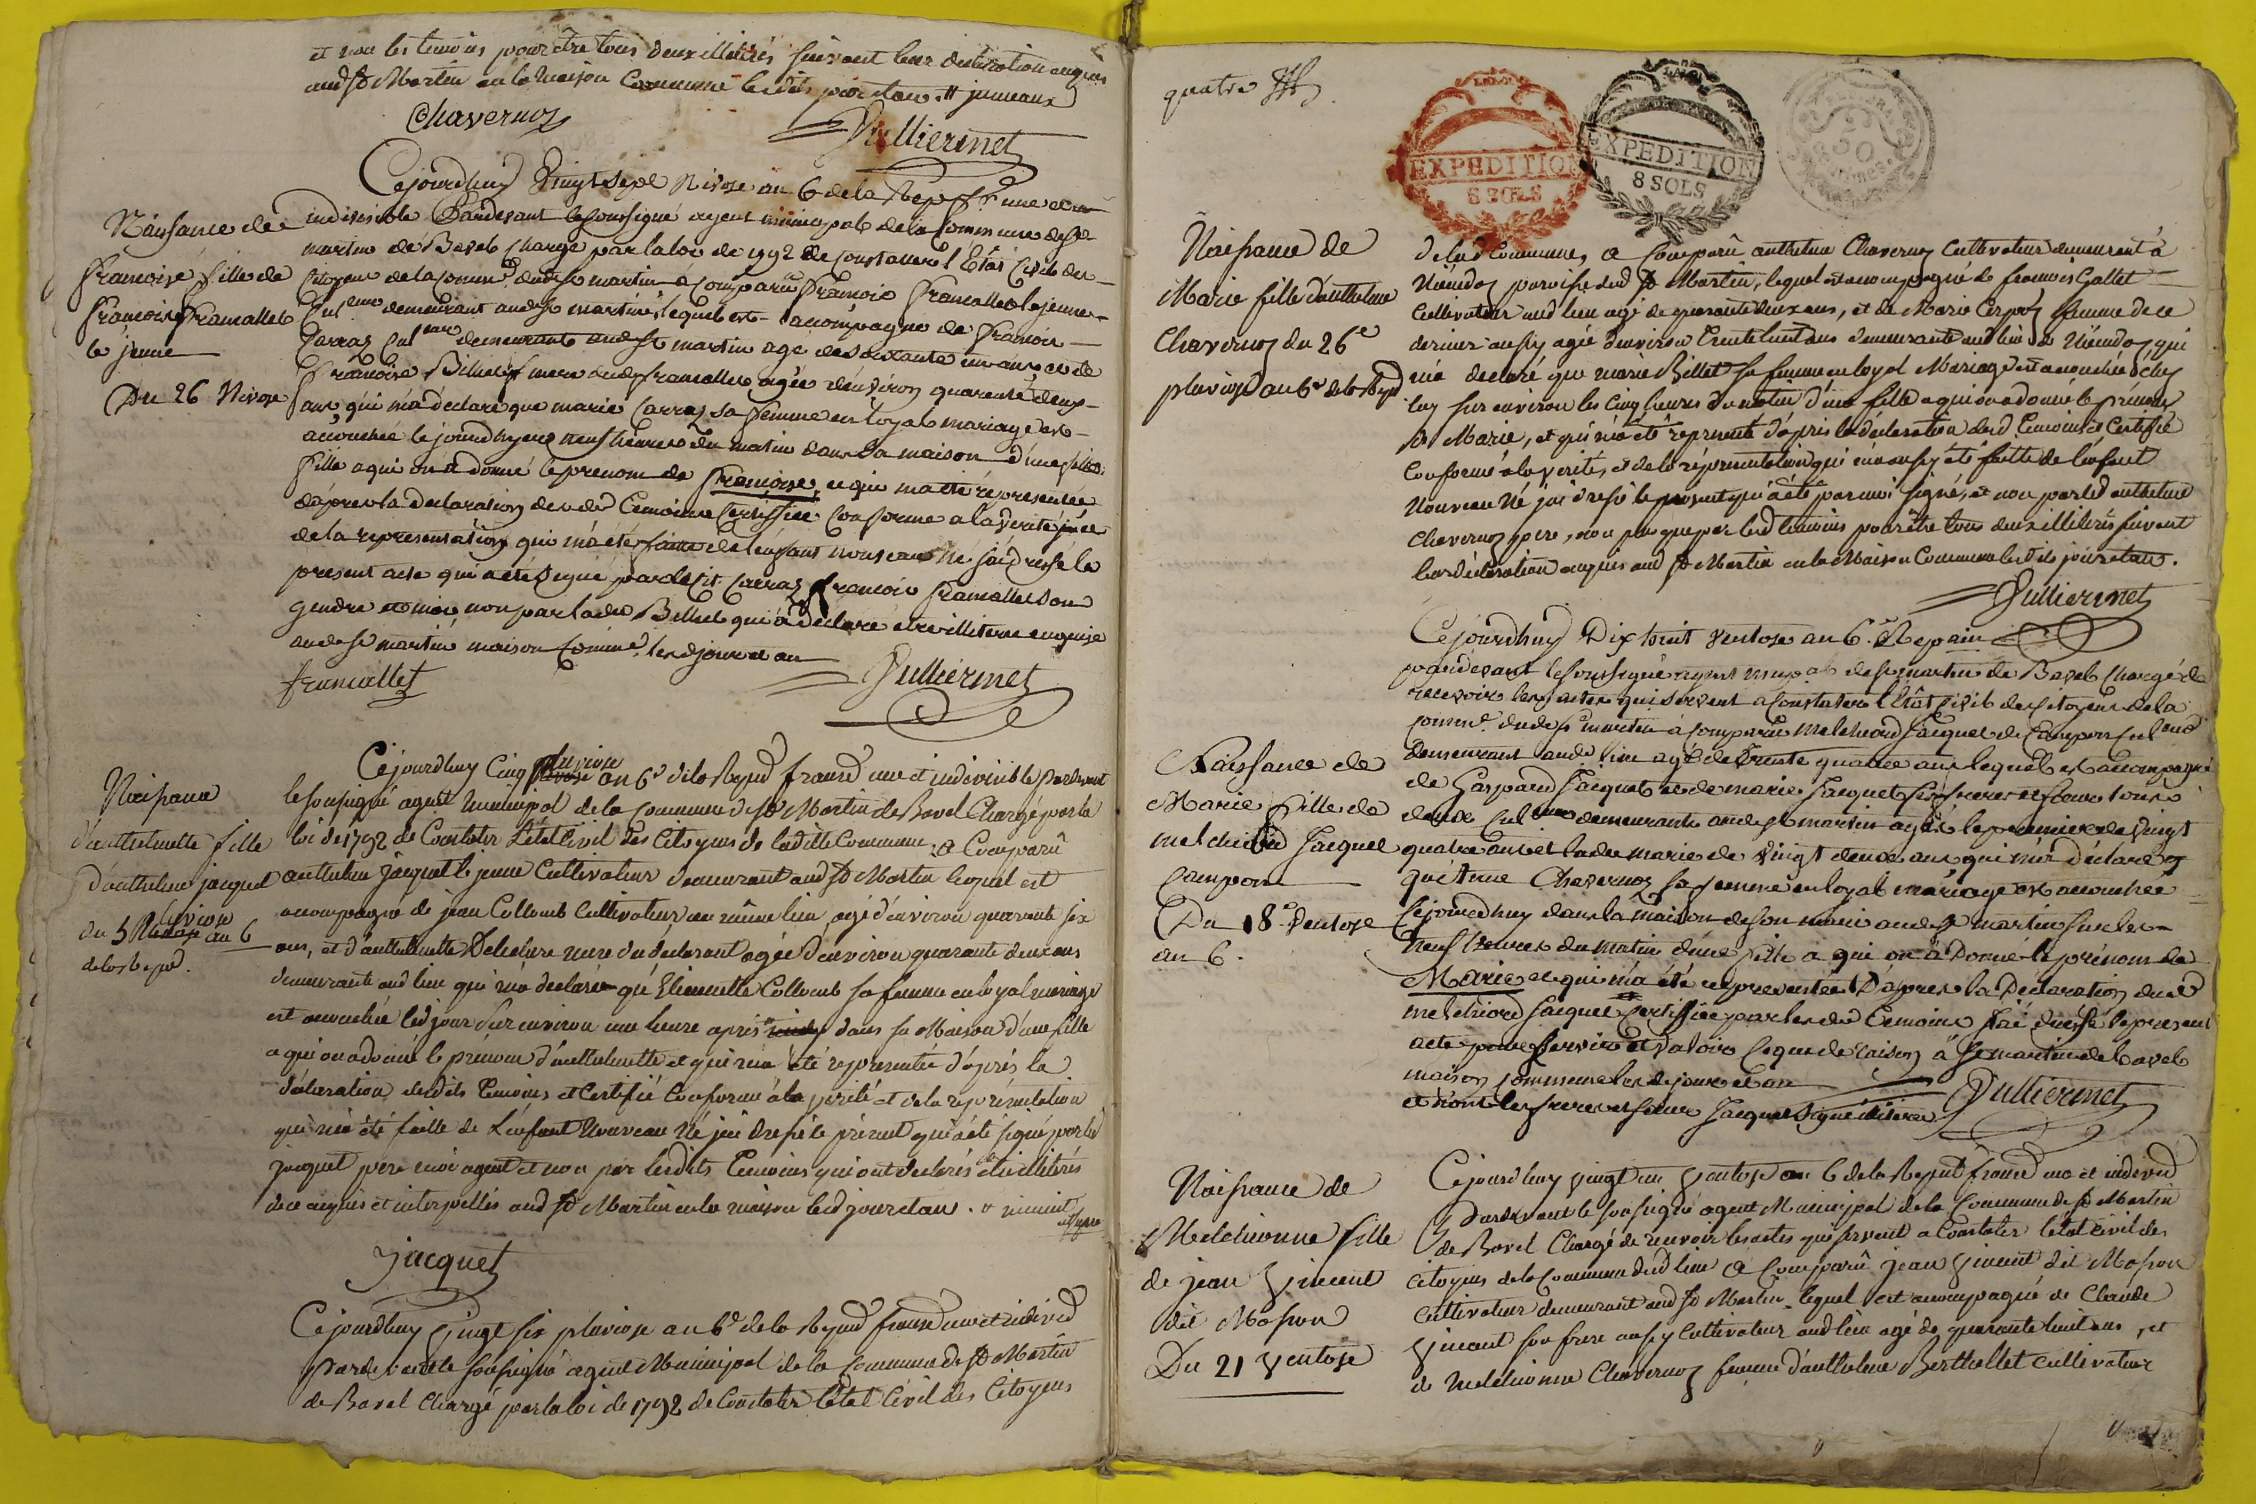 et non les temoins pour être tous deux illiterés suivant leur declaration enquis
aud St Martin en la maison Commune lesdits jour et an # jumeaux
Chavernoz
Vulliermet
Cejourdhuy Vingt sept Nivose an 6 de la Rep fr une et
indivisible Pardevant le soussigné agent municipal de la Commune de St
martin de Bavel Chargé par la loi de 1792 de constater l'Etat Civil des
Citoyens de la comune dudt St martin à comparu François Framallet le jeune
Cul eur demeurant audt St martin lequel est accompagné de François
Carraz cul eur demeurant audt St martin agé de soixante un ans et de
Françoise Billiet mere dudt framallet agée d'environ quarente deux
ans qui m'a déclaré que marie Carraz sa femme en loyal mariage est
accouchée le jourdhuy aux neuf heures du matin dans sa maison d'une fille
fille a qui on a donné le prenom de Françoise, et qui m'a été représentée
d'après la declaration desds Temoins Certiffiée Conforme a la verité et
de la représentation qui m'a été faitte de l'enfant nouveau né j'ai dressé le
present acte qui a été signé par ledit Carraz françois framallet son
gendre et moi non par lade Billiet qui a déclaré etre illiterée enquise
audt St martin maison Comune lesd jour et an
framallet
Vulliermet
Naissance de
Françoise fille de
François Framallet
le jeune
Du 26 Nivose
Cejourdhuy Cinq pluviose an 6e de la Repub francse une et indivisible Pardevant
le soussigné agent municipal de la commune de St Martin de Bavel Chargé par la
loi de 1792 de Constater L'état Civil des Citoyens de ladite Commune, a Comparû
anthelme jacquet le jeune Cultivateur demeurant aud St Martin lequel est
accompagné de jean Collomb Cultivateur au même lieu, agé d'environ quarante six
ans, et d'anthelmette Delechere mere du déclarant agée d'environ quarante deux ans
demeurante aud lieu qui m'a déclaré que Etiennette Collomb sa femme en loyal mariage
est accouchée led jour Sur environ une heure après dans sa Maison d'une fille
a qui on a donné le prénom d'anthelmette et qui m'a été représentée d'après la
déclaration desdits Temoins et Certifié Conforme à la verité et de la représentation
qui m'a été faitte de L'enfant Nouveau Né j'ai dressé le présent qui a été signé par led
jacquet pere moi agent et non par lesdits Temoins qui ont declarés être illiterés
de ce enquis et interpellés aud St Martin en la maison led jour et an.
jacquet
Naissance
d'anthelmette fille
d'anthelme jacquet
du 5 Pluviose an 6
de la Repud.
Cejourdhuy Vingt six pluviose an 6e de la Repud francse une et individ
Pardevant le soussigné agent Municipal de la Commune de St Martin
de Bavel Chargé par la loi de 1792 de Constater l'état Civil des Citoyens
quatre
EXPEDITION
8 SOLS
EXPEDITION
8 SOLS
50
Naissance de
Marie fille d'anthelme
Chavernoz du 26e
pluviose an 6e de la Repud
de lad Commune, a Comparû anthelme Chavernoz Cultivateur demeurant à
paroisse dud St Martin, lequel est accompagné de françois Gallet
Cultivateur aud lieu agé de quarante deux ans, et de Marie Carraz femme de ce
dernier aussy agée d'environ Trente huit ans demeurante aud lieu de qui
m'a declaré que marie Billet sa femme en loyal Mariage est accouchée chez
luy sur environ les Cinq heures du matin d'une fille a qui on a donné le prénom
de Marie, et qui m'a été représenté d'après la declaration desd Temoins et Certifié
Conforme à la verité, et de la réprésentation qui m'en aussy été faitte de l'enfant
Nouveau Né j'ai dressé le present qui a été par moi signé, et non par led anthelme
Chavernoz pere, non plus que par lesd temoins pour être tous deux illiterés suivant
leur déclaration enquis aud St Martin en la Maison Commune lesdits jour et an.
Vulliermet
Cejourdhuy Dix huit Ventose an 6.e Repain
pardevant le soussigné agent munpal de St martin de Bavel Chargé de
recevoir les actes qui servent a Constater l'Etat Civil des Citoyens de la
comune dudt St martin à comparu melchiord Jacquet de Campon Cul eur
demeurant audt lieu agé de trente quatre ans lequel est accompagné
de Gaspard Jacquet et de marie Jacquet ses freres et soeur tous
deux cul eur demeurants audt St martin agés le premier de Vingt
quatre ans et lade marie de Vingt deux ans qui m'a déclaré
qu'Anne Chavernoz sa femme en loyal mariage est accouchée
Cejourdhuy dans la maison de son mari audt St martin sur les
neuf heures du matin d'une fille a qui on a donné le prénom de
Marie et qui m'a été représentée D'après la Déclaration dud
melchiord Jacquet Certiffiée par lesds Temoins j'ai dressé le present
acte pour servir et valoir ce que de raison a St martin de bavel
maison commune lesd jour et an
et n'ont les frere et soeur Jacquet signé illiterés
Vulliermet
Naissance de
Marie fille de
melchiord Jacquet
Campon
Du 18e Ventose
an 6.
Naissance de
Melchionne fille
de jean Vincent
dit Mosson
Du 21 Ventose
Cejourdhuy vingt un Ventose an 6 de la Repub francd une et individ
Pardevant le soussigné agent Municipal de la Commune de St Martin
de Bavel Chargé de recevoir les actes qui servent a Constater letat Civil des
Citoyens de la Commune dud lieu a Comparû jean Vincent dit Mosson
Cultivateur demeurant aud St Martin lequel est accompagné de Claude
Vincent son frere aussy Cultivateur aud lieu agé de quarante huit ans, et
de Melchionne Chavernoz femme d'anthelme Berthellet cultivateur